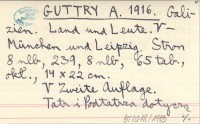 GUTTRY A. 1916. Gali-
zien. Land und Leute. V-
München und Leipzig. Stron
8 nlb, 239, 8 nlb, 65 tab.,
okł., 14 x 22 cm.
V Zweite Auflage.
Tatr i Podtatrza dotyczą